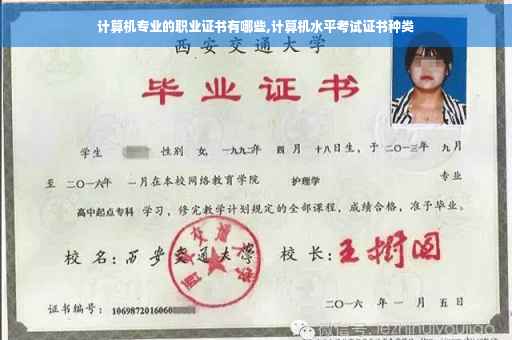 计算机专业的职业证书有哪些,计算机水平考试证书种类
西安交通大学
毕业证书
学生 性别 女, 一九九二年 四月 十八日生, 于二〇一三年 九月
至 二〇一六年 一月在本校网络教育学院 护理学 专业
高中起点专科 学习, 修完教学计划规定的全部课程, 成绩合格, 准予毕业。
校名: 西安交通大学 校长: 王树国
西安交通大学
证书编号: 1069872016060
二〇一六年 一月 五日
微信号: jezhihuiyoujiao